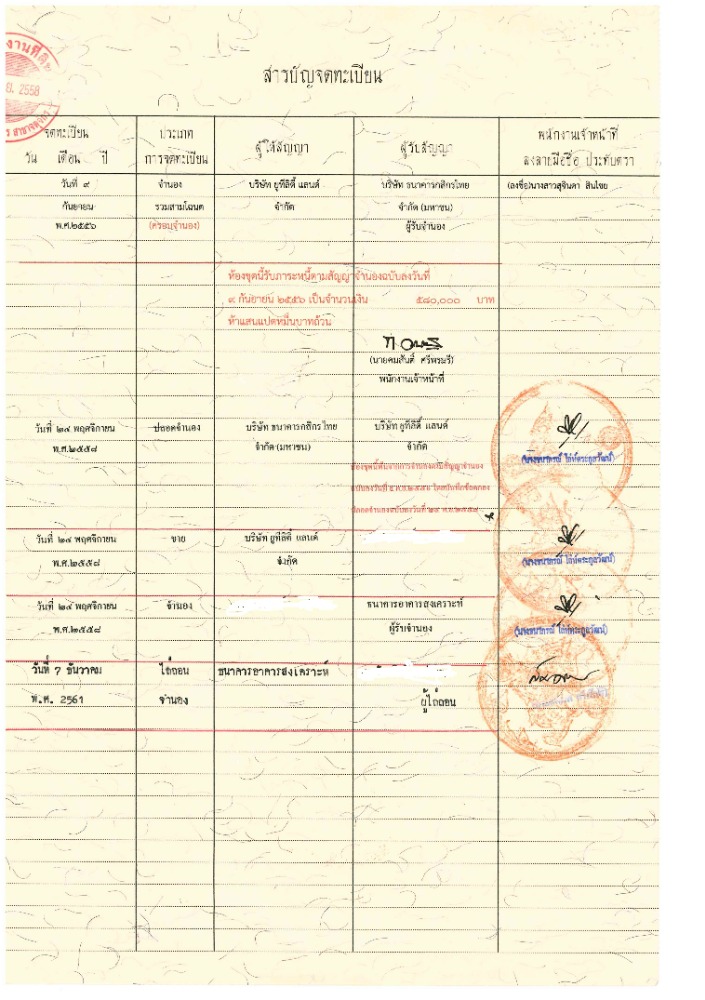 ย. 2558
สารบัญจดทะเบียน
จดทะเบียน
วัน เดือน ปี
ประเภท
การจดทะเบียน
ผู้ให้สัญญา
ผู้รับสัญญา
พนักงานเจ้าหน้าที่
ลงลายมือชื่อ ประทับตรา
วันที่ ๙ จำนอง บริษัท ยูทีลิตี้ แลนด์ บริษัท ธนาคารกสิกรไทย (ลงชื่อ)นางสาวสุจินดา สินไชย
กันยายน รวมสามโฉนด จำกัด จำกัด (มหาชน)
พ.ศ.๒๕๕๖ (ครอบจำนอง) ผู้รับจำนอง
ห้องชุดนี้รับภาระหนี้ตามสัญญาจำนองฉบับลงวันที่
๙ กันยายน ๒๕๕๖ เป็นจำนวนเงิน ๕๘๐,๐๐๐ บาท
ห้าแสนแปดหมื่นบาทถ้วน
(นายคมสันติ์ ศรีพรมรี)
พนักงานเจ้าหน้าที่
วันที่ ๒๔ พฤศจิกายน ปลอดจำนอง บริษัท ธนาคารกสิกรไทย บริษัท ยูทีลิตี้ แลนด์
พ.ศ.๒๕๕๘ จำกัด(มหาชน) จำกัด
วันที่ ๒๔ พฤศจิกายน ขาย บริษัท ยูทีลิตี้ แลนด์
พ.ศ.๒๕๕๘ จำกัด
วันที่ ๒๔ พฤศจิกายน จำนอง ธนาคารอาคารสงเคราะห์
พ.ศ.๒๕๕๘ ผู้รับจำนอง
วันที่ 7 ธันวาคม ไถ่ถอน ธนาคารอาคารสงเคราะห์
พ.ศ. 2561 จำนอง ผู้ไถ่ถอน